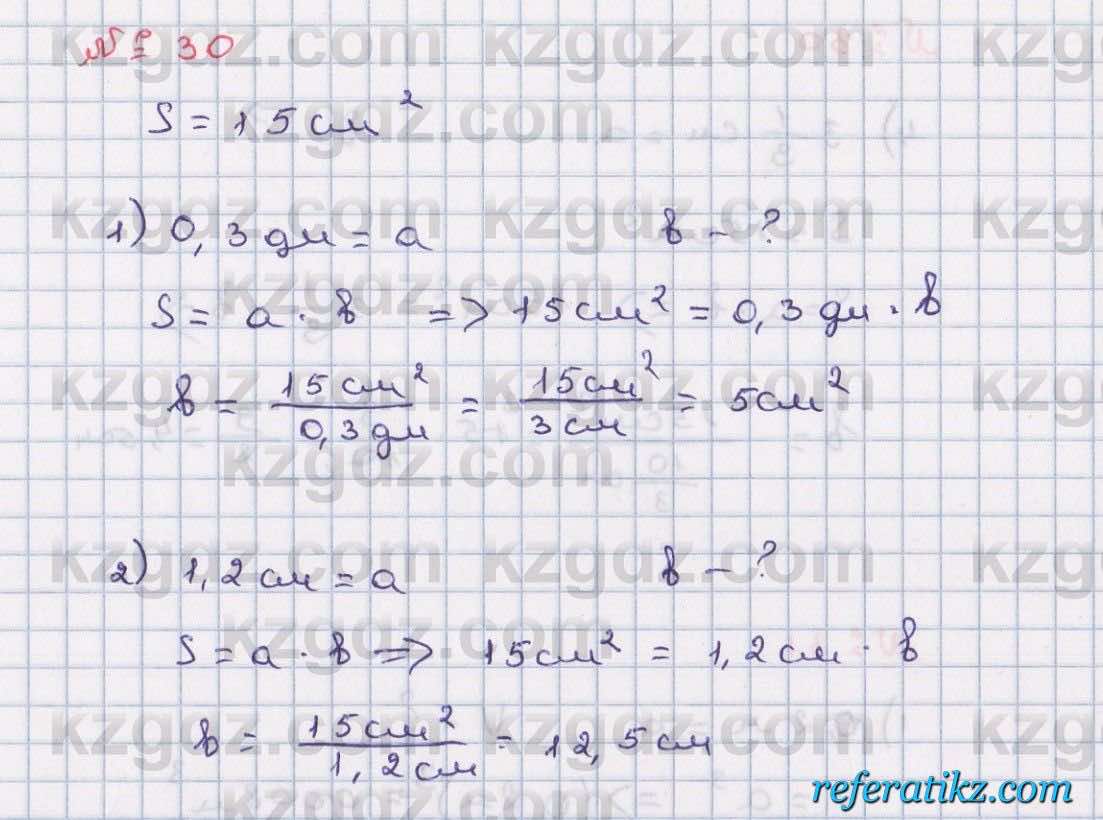 № 30
S = 15 см²
1) 0,3 дм = a b - ?
S = a · b => 15 см² = 0,3 дм · b
b = 15 см² / 0,3 дм = 15 см² / 3 см = 5 см²
2) 1,2 см = a b - ?
S = a · b => 15 см² = 1,2 см · b
b = 15 см² / 1,2 см = 12,5 см
referatikz.com